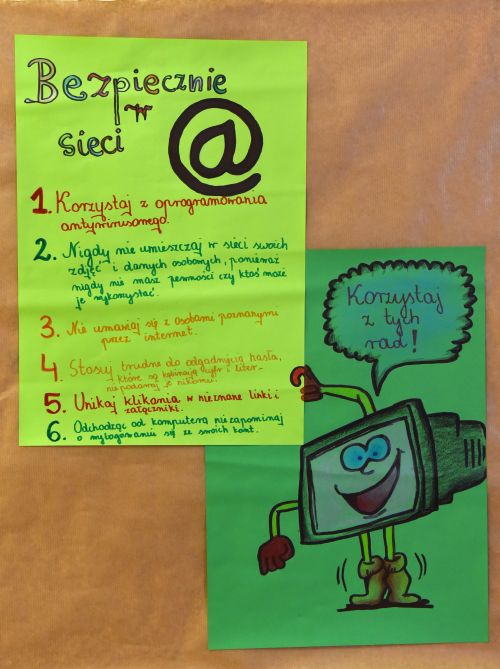 Bezpiecznie
w
sieci
@
1. Korzystaj z oprogramowania
antywirusowego.
2. Nigdy nie umieszczaj w sieci swoich
zdjęć i danych osobowych, ponieważ
nigdy nie masz pewności czy ktoś może
je wykorzystać.
3. Nie umawiaj się z osobami poznanymi
przez internet.
4. Stosuj trudne do odgadnięcia hasła,
które są kombinacją cyfr i liter-
nie podawaj je nikomu.
5. Unikaj klikania w nieznane linki i
załączniki.
6. Odchodząc od komputera nie zapominaj
o wylogowaniu się ze swoich kont.
Korzystaj
z tych
rad!